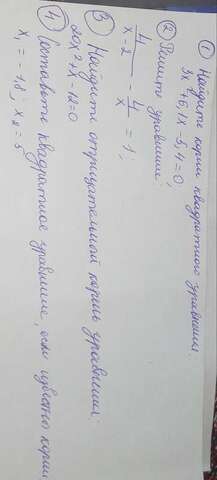 ① Найдите корни квадратного уравнения:
3x² + 6,1x - 5,4 = 0
② Решите уравнение:
4/(x-2) - 4/x = 1;
③ Найдите отрицательный корень уравнения:
20x² + x - 12 = 0
④ Составьте квадратное уравнение, если известно корни
x₁ = - 1,8; x₂ = 5